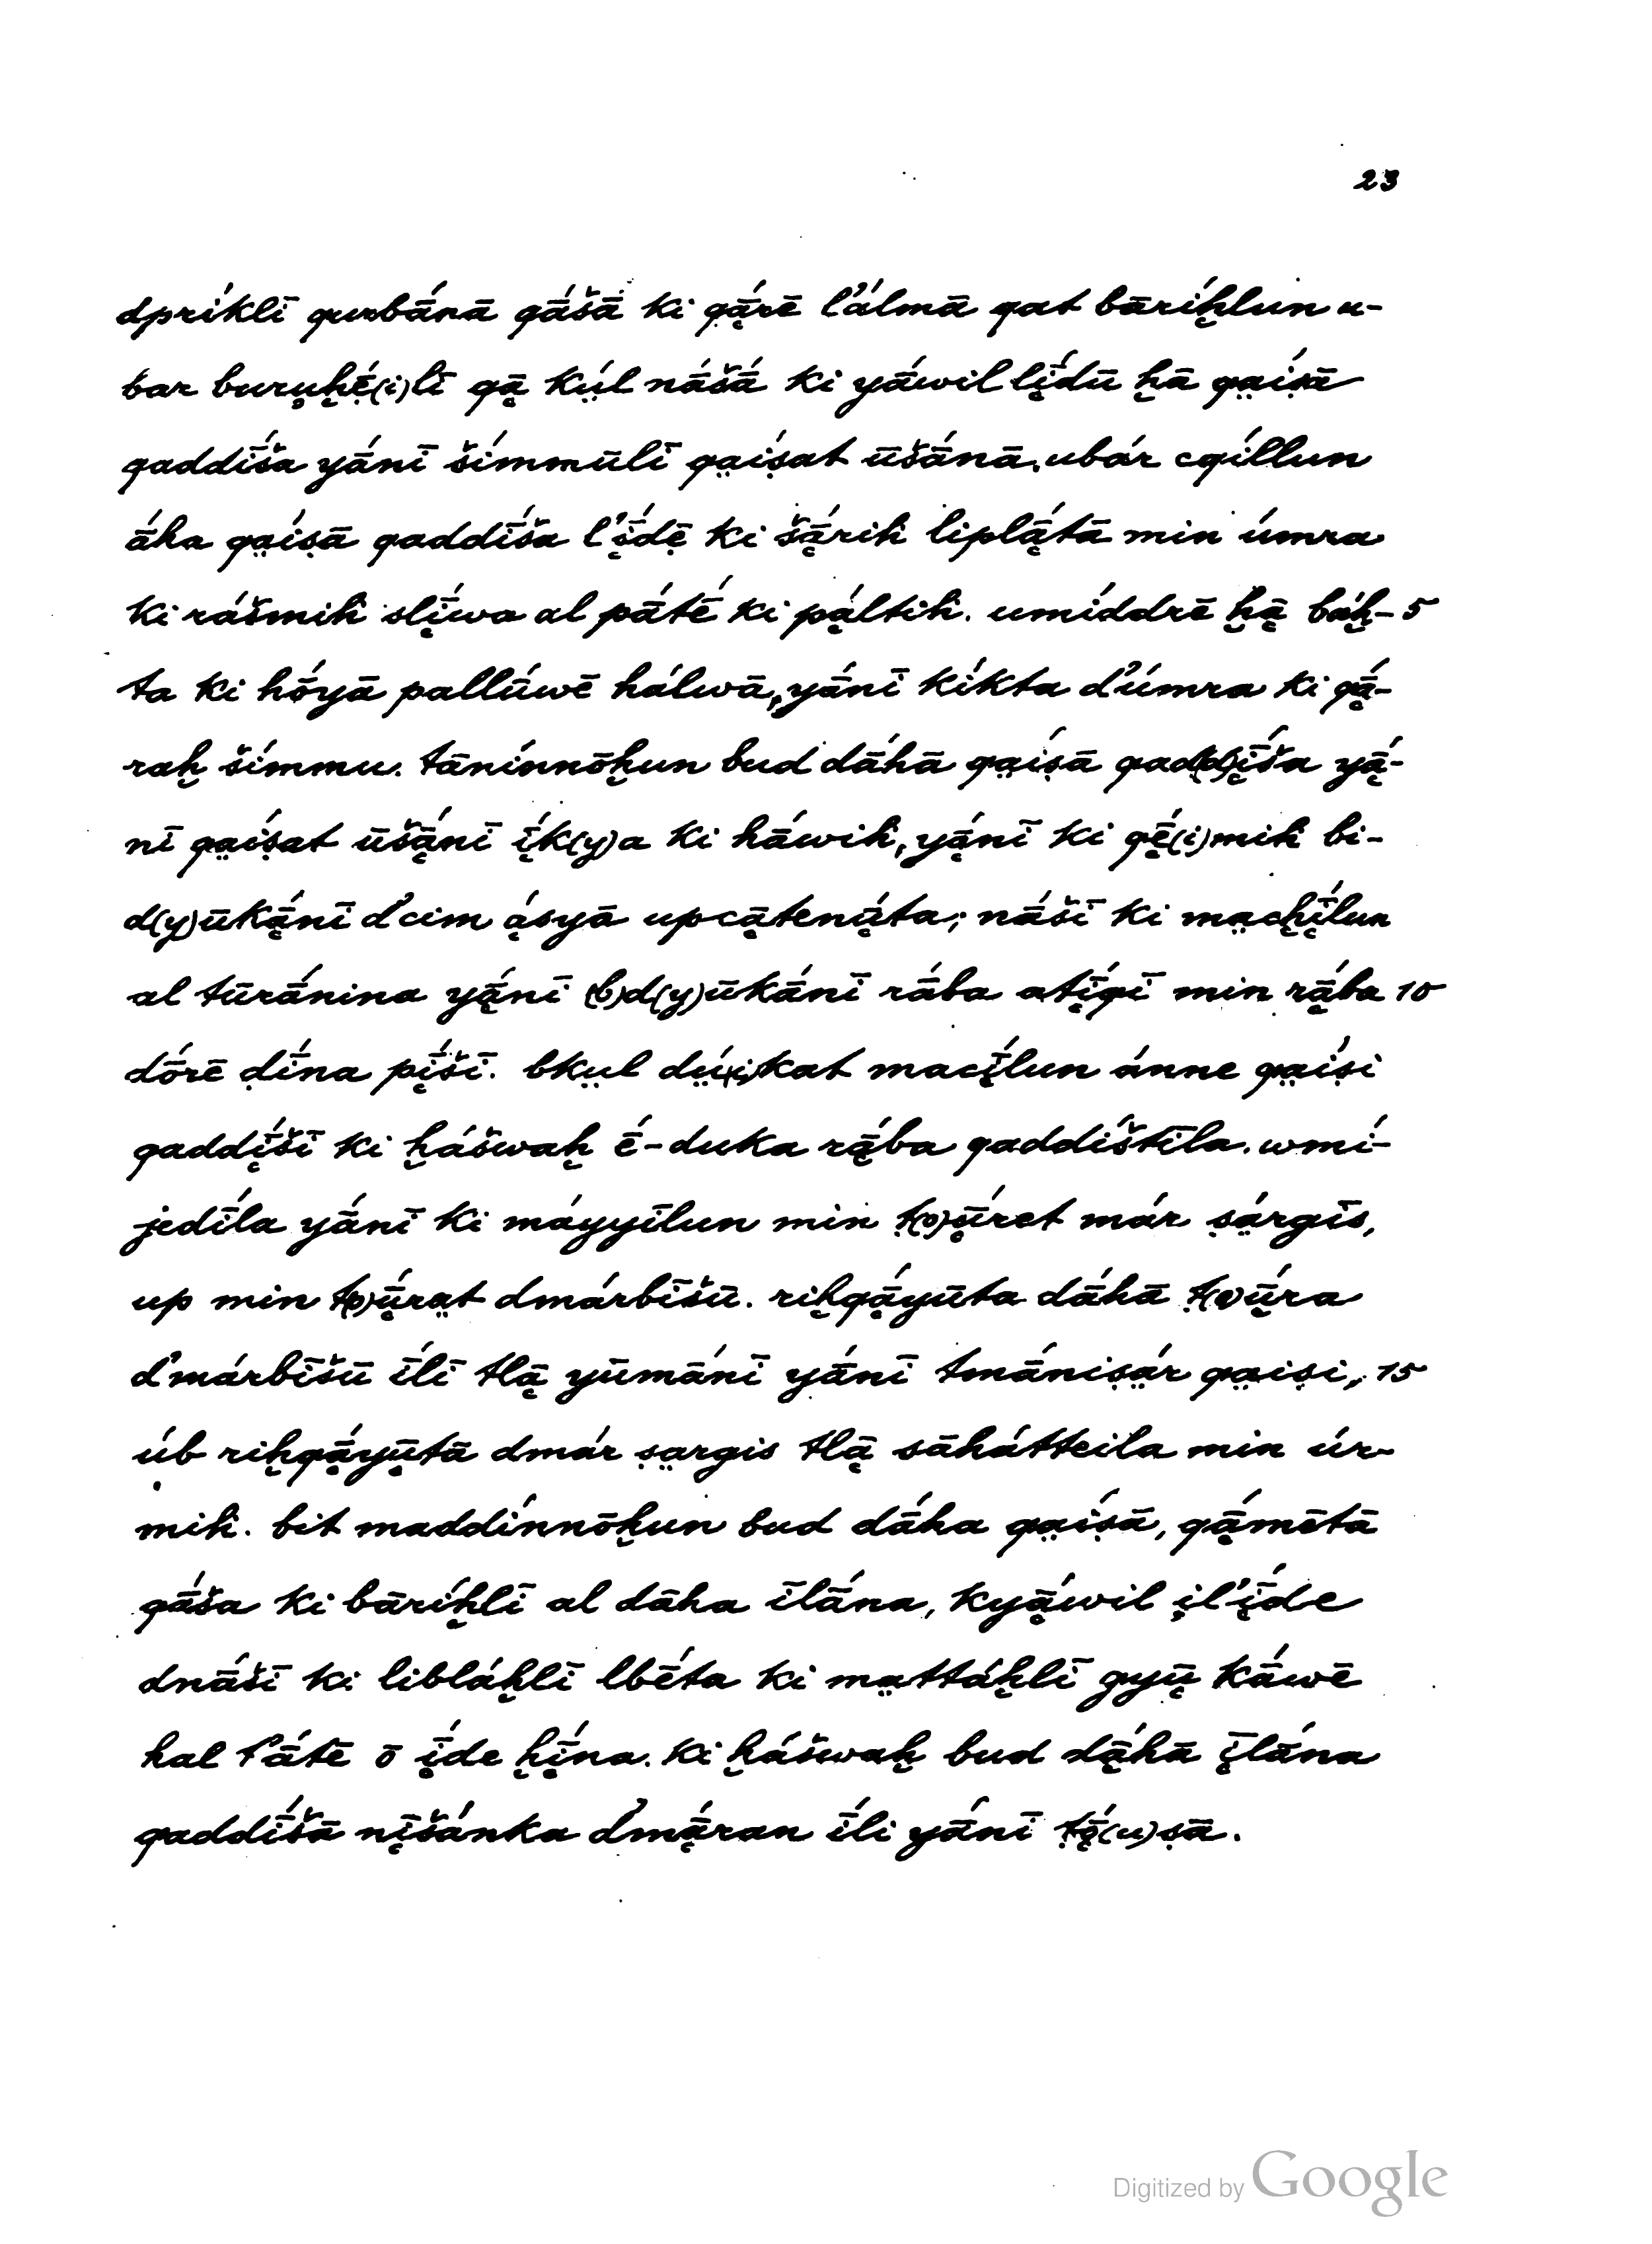 23
dpríklī qurbā́nā qā́šā ki qā̜́rē l’álmā qat bāríḫlun u-
bar buru̜ḫé̄(i)lī qā̜ kṳl nā́šā́ ki yā́wil lī̜́dū ḫā qa̤ísā
qaddī́ša yā́nī šímmūlī qa̤iṣat ūšā́nā. ubár cqíllun
ā́ha qa̤íṣā qaddī́ša l’ī̜́dē ki šā̜́rih liplā̜́tā min úmra
ki rášmih slī̜́wa al pā́tḗ ki pā̜́ltih. umíddrē ḫā̜ báḫ- 5
ta ki hṓyā pallū́wē hálwā, yā́nī kíkta d’úmra ki qā̜́-
raḫ šímmu. tānínnōḫun bud dā́hā qa̤íṣā qad(d)ī̜́ša yā̜́-
nī qa̤íṣat ūšā̜́nī ī̜́k(y)a ki hā́wih, yā̜́nī ki qḗ̜(i)mih bi-
d(y)ūkā̜́nī d’cim ā̜́syā upcā̜tenū̜́ta; nā́šī ki ma̤cḫī̜́lun
al tūrā́nina yā̜́nī (b)d(y)ūkā́nī rā́ba atī̜́qī min rā̜́ba 10
dṓrē ḍī́na pī̜́šī. bkṳl dṳ̄́(i)kat macī̜́lun ánne qa̤íṣi
qaddī̜́šī ki ḫášwaḫ ḗ-duka rā̜́ba qaddíštīla. wmí-
jedī́la yā́nī ki máyyīlun min ṭ(o)ū̜́ret már ṣa̤rgīs,
up min ṭ(o)ū̜́ra̤t dmárbīšū. riḫqā̜́yūta dā́hā ṭ(o)ū̜́ra
d’márbīšū ī́lī tlā̜ yūmā́nī yā́nī tmā́niṣa̤r qa̤iṣi, 15
úb riḫqā̜́yū̜tā dmár ṣa̤rgis tlā̜ sāhátteila min úr-
mih. bit maddínnōḫun bud dā́ha qa̤íṣā, qā̜́mētā
qā́ša ki bāríḫlī al dāha īlā́na, kyā̜́wil i̜l’ī̜́de
dnā́šī ki libláḫlī lbḗta ki ma̤ttáḫlī gyū̜ kā́wē
hal l’ā́tē ō ī̜́de ḫī̜́na. ki ḫášwaḫ bud dā̜́hā ī̜lā́na
qaddī́šā nī̜šánka d’mā̜́ran ī́li yā́nī ṭā̜́(u)ṣā.
Digitized by Google